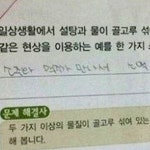 일상생활에서 설탕과 물이 골고루 섞
같은 현상을 이용하는 예를 한 가지
소주와 맥주가 만나서 소맥
문제 해결사
두 가지 이상의 물질이 골고루 섞여 있는
해 봅니다.